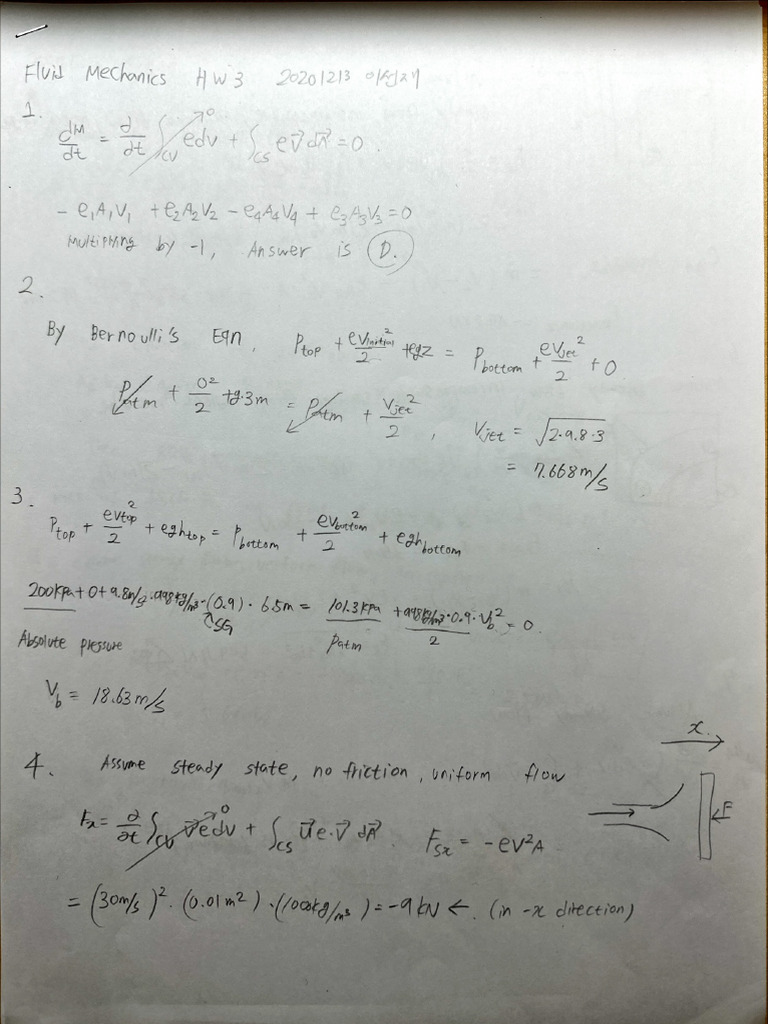 Fluid Mechanics HW3 20201213 이선재
1.
dM/dt = ∂/∂t ∫cv edv + ∫cs eV⃗ dA⃗ = 0. 0
- e₁A₁V₁ + e₂A₂V₂ - e₄A₄V₄ + e₃A₃V₃ = 0
Multiplying by -1, Answer is D.
2.
By Bernoulli's Eqn, Ptop + eVinitial²/2 + egz = Pbottom + eVjet²/2 + 0
Patm + 0²/2 + g·3m = Patm + Vjet²/2, Vjet = √2·9.8·3
= 7.668 m/s
3.
Ptop + eVtop²/2 + eghtop = Pbottom + eVbottom²/2 + eghbottom
200kPa + 0 + 9.8m/s²·998kg/m³·(0.9)·6.5m = 101.3kPa + 998kg/m³·0.9·Vb²/2 = 0.
SG
Absolute pressure Patm
Vb = 18.63 m/s
x
4. Assume steady state, no friction, uniform flow
Fx = ∂/∂t ∫cv V⃗edv + ∫cs U⃗e·V⃗ dA⃗. Fsx = -eV²A 0
F
= (30m/s)²·(0.01m²)·(1000kg/m³) = -9kN ←. (in -x direction)